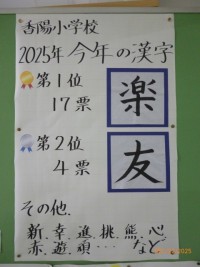 香陽小学校
2025年 今年の漢字
第1位
17票
楽
第2位
4票
友
その他.
新.幸.進.挑.熊.心
赤.遊.頑… など